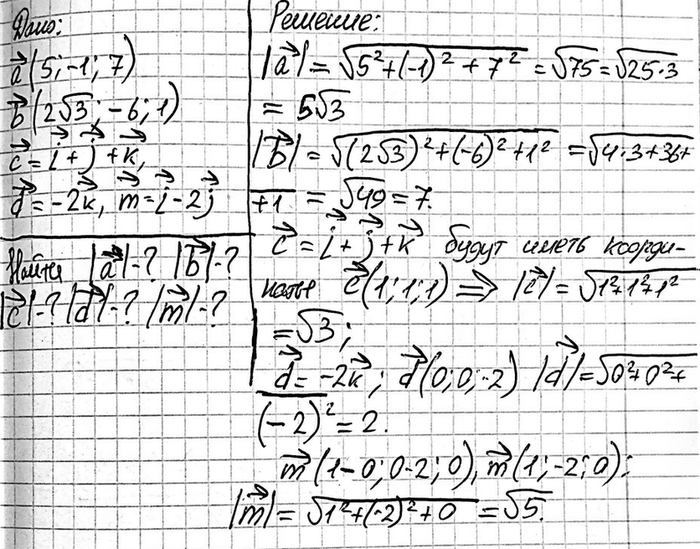 Дано:
a⃗(5; -1; 7)
b⃗(2√3; -6; 1)
c⃗ = i⃗ + j⃗ + k⃗,
d⃗ = -2k⃗, m⃗ = i⃗ - 2j⃗
Найти |a⃗|-? |b⃗|-?
|c⃗|-? |d⃗|-? |m⃗|-?
Решение:
|a⃗| = √(5² + (-1)² + 7²) = √75 = √(25·3)
= 5√3
|b⃗| = √((2√3)² + (-6)² + 1²) = √(4·3 + 36 +
+1 = √49 = 7.
c⃗ = i⃗ + j⃗ + k⃗ будут иметь коорди-
наты c⃗(1; 1; 1) ⟹ |c⃗| = √(1² + 1² + 1²)
= √3;
d⃗ = -2k⃗; d⃗(0; 0; -2) |d⃗| = √(0² + 0² +
(-2)² = 2.
m⃗(1-0; 0-2; 0), m⃗(1; -2; 0);
|m⃗| = √(1² + (-2)² + 0) = √5.